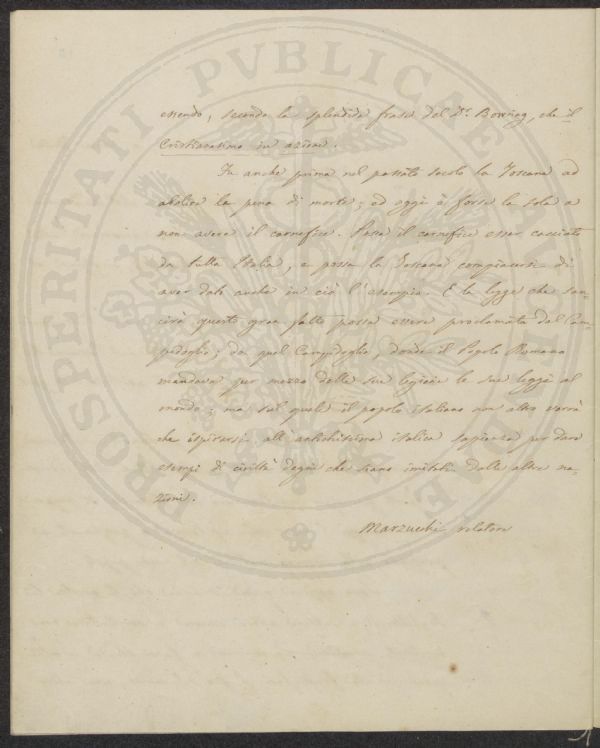 essendo, secondo la splendida frase del Dr. Bowring, che il
Cristianesimo in azione.
Fu anche prima nel passato secolo la Toscana ad
abolire la pena di morte; ed oggi è forse la sola a
non avere il carnefice. Possa il carnefice esser cacciato
da tutta Italia, e possa la Toscana compiacersi di
aver dato anche in ciò l'esempio. E la legge che san-
cirà questo gran fatto possa essere proclamata dal Cam-
pidoglio; da quel Campidoglio, donde il Popolo Romano
mandava per mezzo delle sue legioni le sue leggi al
mondo; ma sul quale il popolo italiano non altro vorrà
che ispirarsi all'antichissima italica sapienza per dare
esempi di civiltà degni che siano imitati dalle altre na-
zioni.
Marzucchi relatore
PROSPERITATI PVBLICAE